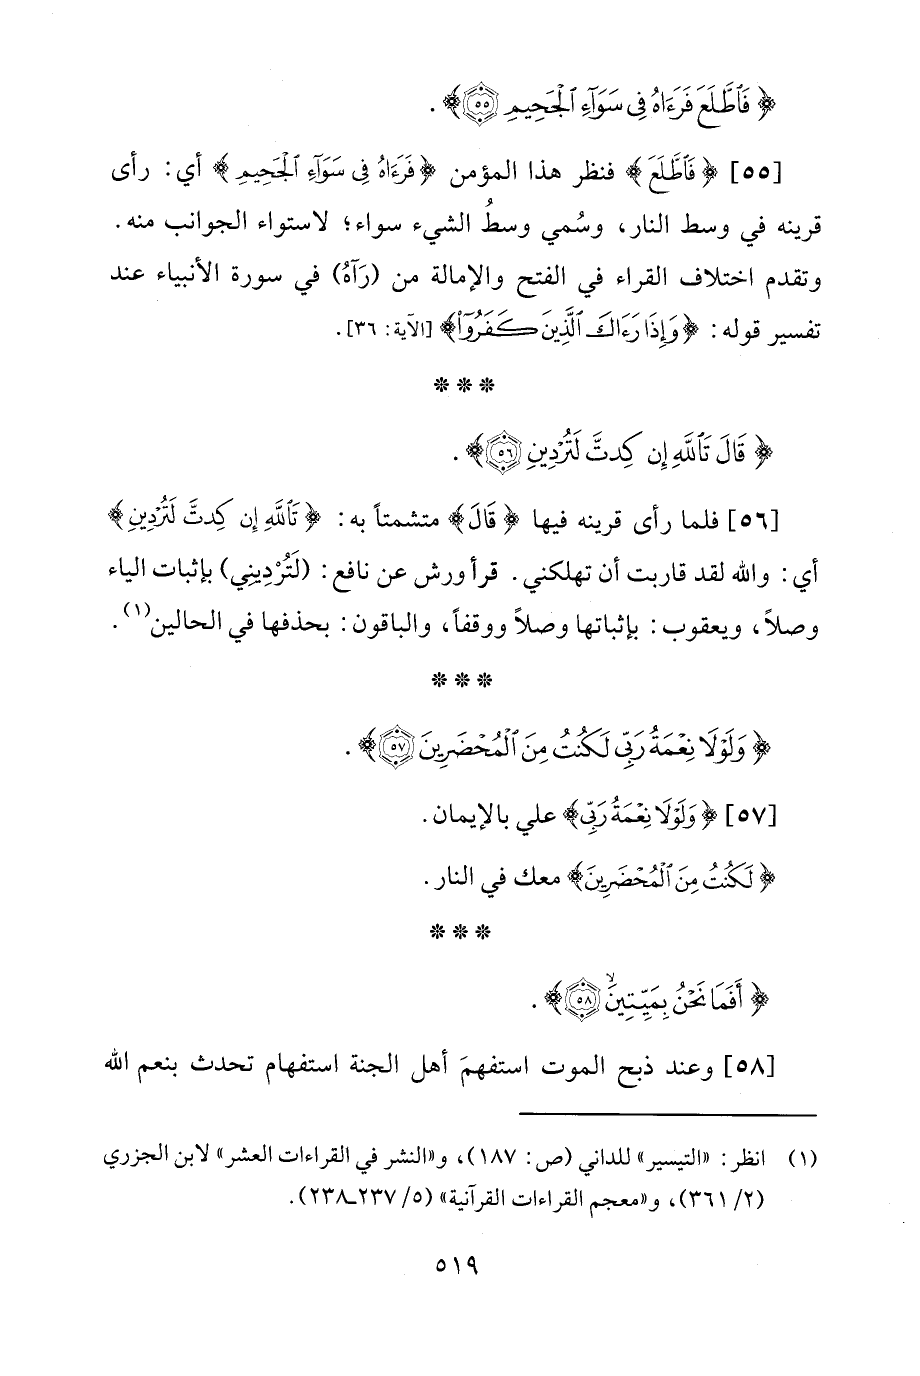 ﴿ فَٱطَّلَعَ فَرَءَاهُ فِي سَوَآءِ ٱلْجَحِيمِ ﴿٥٥﴾ ﴾ .
[٥٥] ﴿ فَٱطَّلَعَ ﴾ فنظر هذا المؤمن ﴿ فَرَءَاهُ فِي سَوَآءِ ٱلْجَحِيمِ ﴾ أي: رأى
قرينه في وسط النار، وسُمي وسطُ الشيء سواء؛ لاستواء الجوانب منه.
وتقدم اختلاف القراء في الفتح والإمالة من (رَآهُ) في سورة الأنبياء عند
تفسير قوله: ﴿ وَإِذَا رَءَاكَ ٱلَّذِينَ كَفَرُوٓاْ ﴾ [الآية: ٣٦].
* * *
﴿ قَالَ تَٱللَّهِ إِن كِدتَّ لَتُرْدِينِ ﴿٥٦﴾ ﴾ .
[٥٦] فلما رأى قرينه فيها ﴿ قَالَ ﴾ متشمتاً به: ﴿ تَٱللَّهِ إِن كِدتَّ لَتُرْدِينِ ﴾
أي: والله لقد قاربت أن تهلكني. قرأ ورش عن نافع: (لَتُرْدِينِي) بإثبات الياء
وصلاً، ويعقوب: بإثباتها وصلاً ووقفاً، والباقون: بحذفها في الحالين(١).
* * *
﴿ وَلَوْلَا نِعْمَةُ رَبِّي لَكُنتُ مِنَ ٱلْمُحْضَرِينَ ﴿٥٧﴾ ﴾ .
[٥٧] ﴿ وَلَوْلَا نِعْمَةُ رَبِّي ﴾ علي بالإيمان.
﴿ لَكُنتُ مِنَ ٱلْمُحْضَرِينَ ﴾ معك في النار.
* * *
﴿ أَفَمَا نَحْنُ بِمَيِّتِينَ ۙ ﴿٥٨﴾ ﴾ .
[٥٨] وعند ذبح الموت استفهمَ أهل الجنة استفهام تحدث بنعم الله
(١) انظر: «التيسير» للداني (ص: ١٨٧)، و«النشر في القراءات العشر» لابن الجزري
(٢/ ٣٦١)، و«معجم القراءات القرآنية» (٥/ ٢٣٧ـ٢٣٨).
٥١٩